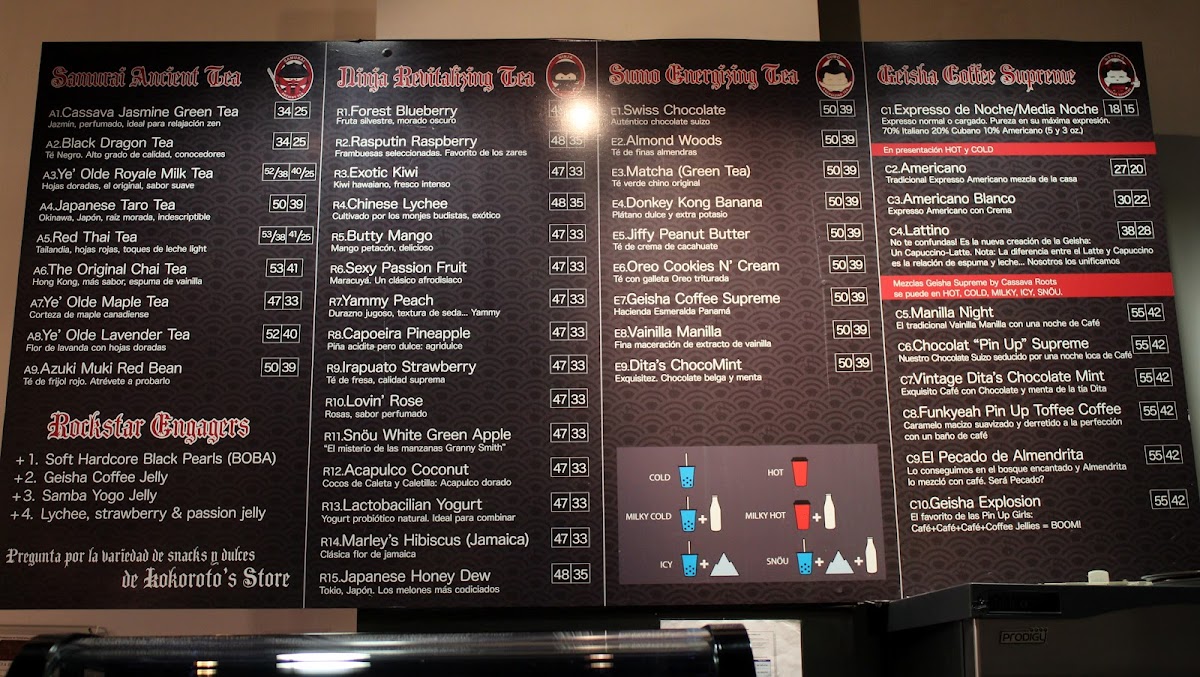 Samurai Ancient Tea
A1.Cassava Jasmine Green Tea 34 25
Jazmín, perfumado, ideal para relajación zen
A2.Black Dragon Tea 34 25
Té Negro. Alto grado de calidad, conocedores
A3.Ye' Olde Royale Milk Tea 52/38 40/25
Hojas doradas, el original, sabor suave
A4.Japanese Taro Tea 50 39
Okinawa, Japón, raíz morada, indescriptible
A5.Red Thai Tea 53/38 41/25
Tailandia, hojas rojas, toques de leche light
A6.The Original Chai Tea 53 41
Hong Kong, más sabor, espuma de vainilla
A7.Ye' Olde Maple Tea 47 33
Corteza de maple canadiense
A8.Ye' Olde Lavender Tea 52 40
Flor de lavanda con hojas doradas
A9.Azuki Muki Red Bean 50 39
Té de frijol rojo. Atrévete a probarlo
Rockstar Engagers
+1. Soft Hardcore Black Pearls (BOBA)
+2. Geisha Coffee Jelly
+3. Samba Yogo Jelly
+4. Lychee, strawberry & passion jelly
Pregunta por la variedad de snacks y dulces
de Kokoroto's Store
Ninja Revitalizing Tea
R1.Forest Blueberry
Fruta silvestre, morado oscuro
R2.Rasputin Raspberry 48 35
Frambuesas seleccionadas. Favorito de los zares
R3.Exotic Kiwi 47 33
Kiwi hawaiano, fresco intenso
R4.Chinese Lychee 48 35
Cultivado por los monjes budistas, exótico
R5.Butty Mango 47 33
Mango petacón, delicioso
R6.Sexy Passion Fruit 47 33
Maracuyá. Un clásico afrodisíaco
R7.Yammy Peach 47 33
Durazno jugoso, textura de seda... Yammy
R8.Capoeira Pineapple 47 33
Piña acidita pero dulce: agridulce
R9.Irapuato Strawberry 47 33
Té de fresa, calidad suprema
R10.Lovin' Rose 47 33
Rosas, sabor perfumado
R11.Snöu White Green Apple 47 33
"El misterio de las manzanas Granny Smith"
R12.Acapulco Coconut 47 33
Cocos de Caleta y Caletilla: Acapulco dorado
R13.Lactobacilian Yogurt 47 33
Yogurt probiótico natural. Ideal para combinar
R14.Marley's Hibiscus (Jamaica) 47 33
Clásica flor de jamaica
R15.Japanese Honey Dew 48 35
Tokio, Japón. Los melones más codiciados
Sumo Energizing Tea
E1.Swiss Chocolate 50 39
Auténtico chocolate suizo
E2.Almond Woods 50 39
Té de finas almendras
E3.Matcha (Green Tea) 50 39
Té verde chino original
E4.Donkey Kong Banana 50 39
Plátano dulce y extra potasio
E5.Jiffy Peanut Butter 50 39
Té de crema de cacahuate
E6.Oreo Cookies N' Cream 50 39
Té con galleta Oreo triturada
E7.Geisha Coffee Supreme 50 39
Hacienda Esmeralda Panamá
E8.Vainilla Manilla 50 39
Fina maceración de extracto de vainilla
E9.Dita's ChocoMint 50 39
Exquisitez. Chocolate belga y menta
COLD HOT
MILKY COLD + MILKY HOT +
ICY + SNÖU + +
Geisha Coffee Supreme
C1.Expresso de Noche/Media Noche 18 15
Expresso normal o cargado. Pureza en su máxima expresión.
70% Italiano 20% Cubano 10% Americano (5 y 3 oz.)
En presentación HOT y COLD
C2.Americano 27 20
Tradicional Expresso Americano mezcla de la casa
C3.Americano Blanco 30 22
Expresso Americano con Crema
C4.Lattino 38 28
No te confundas! Es la nueva creación de la Geisha:
Un Capuccino-Latte. Nota: La diferencia entre el Latte y Capuccino
es la relación de espuma y leche... Nosotros los unificamos
Mezclas Geisha Supreme by Cassava Roots
se puede en HOT, COLD, MILKY, ICY, SNÖU.
C5.Manilla Night 55 42
El tradicional Vainilla Manilla con una noche de Café
C6.Chocolat "Pin Up" Supreme 55 42
Nuestro Chocolate Suizo seducido por una noche loca de Café
C7.Vintage Dita's Chocolate Mint 55 42
Exquisito Café con Chocolate y menta de la tía Dita
C8.Funkyeah Pin Up Toffee Coffee 55 42
Caramelo macizo suavizado y derretido a la perfección
con un baño de café
C9.El Pecado de Almendrita 55 42
Lo conseguimos en el bosque encantado y Almendrita
lo mezcló con café. Será Pecado?
C10.Geisha Explosion 55 42
El favorito de las Pin Up Girls:
Café+Café+Café+Coffee Jellies = BOOM!
PRODIGY